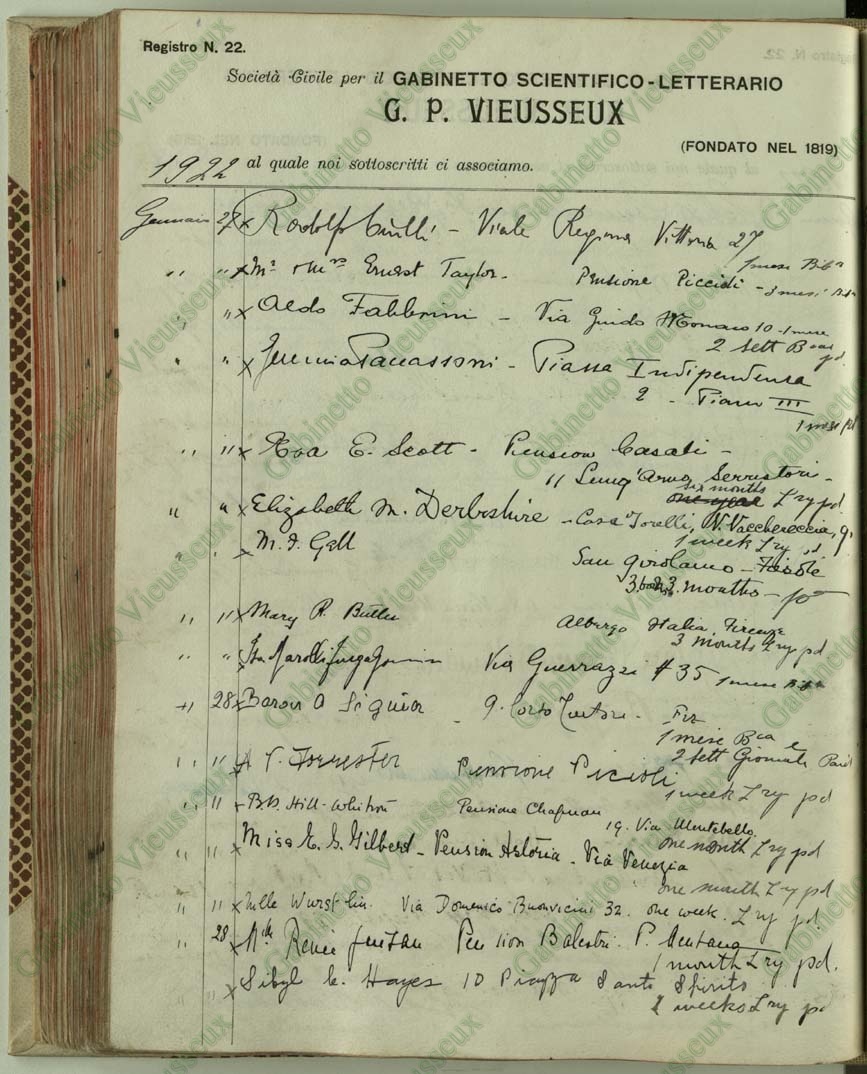 Registro N. 22.
Società Civile per il GABINETTO SCIENTIFICO-LETTERARIO
G. P. VIEUSSEUX
(FONDATO NEL 1819)
1922 al quale noi sottoscritti ci associamo.
Gennaio 27 x Rodolfo - Viale Regina Vittoria 27
1 mese Bibᵃ
" " x Mr & Mrs Ernest Taylor - Pensione Piccioli - 3 mesi
" " x Aldo Fabbrini - Via Guido Monaco 10 - 1 mese
2 Sett Bcaᵃ pd.
" " x - Piazza Indipendenza
2 - Piano III
1 mese pd
" " x Eva E. Scott - Pension Casali -
11 Lung'Arno Serristori -
six months
one year Lry pd.
" " x Elizabeth M. Derbyshire - Casa Torelli, V. Vacchereccia, 9,
1 week Lry pd
" " M. I. Gall San Girolamo - Fiesole
3 months -
" " x Mary R. Butler Albergo Italia, Firenze
3 months Lry pd
" " Via Guerrazzi # 35 1 mese
" 28 x Baron A 9. Corso
1 mese Bca e
2 Sett Giornali Paid
" " x Forrester Pensione Picioli
1 week Lry pd
" " Hill-Whitson Pensione Chapman
19. Via Montebello.
one month Lry pd
" " x Miss E. G. Gilbert - Pension Astoria - Via Venezia
one month Lry pd
" " x Via Domenico Buonvicini 32. one week. Lry pd.
" 28 x Mlle Renée Pension Balestri. P. Mentana
1 month Lry pd.
" " x Sibyl C. Hayes 10 Piazza Santo Spirito
2 weeks Lry pd